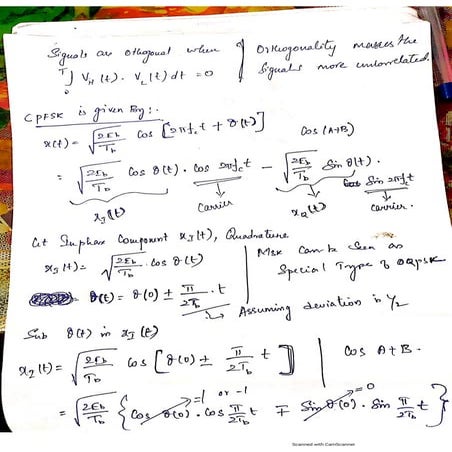 Signals are othogonal when
T∫0 VH(t). VL(t) dt = 0
Orthogonality makes the
Signals more unlorrelated.
CPFSK is given By:-
x(t) = √(2Eb/Tb) cos [2πfct + θ(t)]
Cos (A+B)
= √(2Eb/Tb) cos θ(t). cos 2πfct - √(2Eb/Tb) Sin θ(t). Sin 2πfct
xI(t) Carrier xQ(t) Carrier.
let Inphase Component xI(t), Quadrature
xI(t) = √(2Eb/Tb) . cos θ(t)
θ(t) = θ(0) ± π/2Tb . t
Msk can be seen as
Special Type of OQPSK
Assuming deviation is 1/2
Sub θ(t) in xI(t)
xI(t) = √(2Eb/Tb) cos [θ(0) ± π/2Tb t]
Cos A+B.
= √(2Eb/Tb) {Cos θ(0) . cos π/2Tb t ∓ Sin θ(0). Sin π/2Tb t}
=1 or -1
=0
Scanned with CamScanner